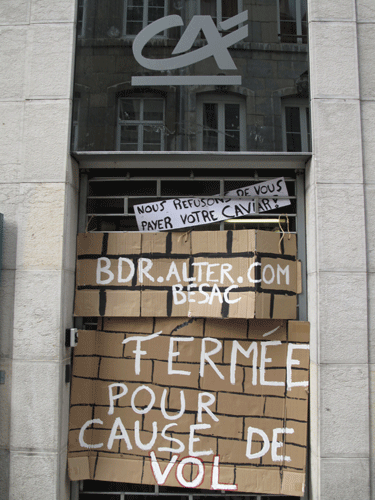 CA
NOUS REFUSONS DE VOUS
PAYER VOTRE CAVIAR!
BDR.ALTER.COM
BESAC
FERMÉE
POUR
CAUSE DE
VOL